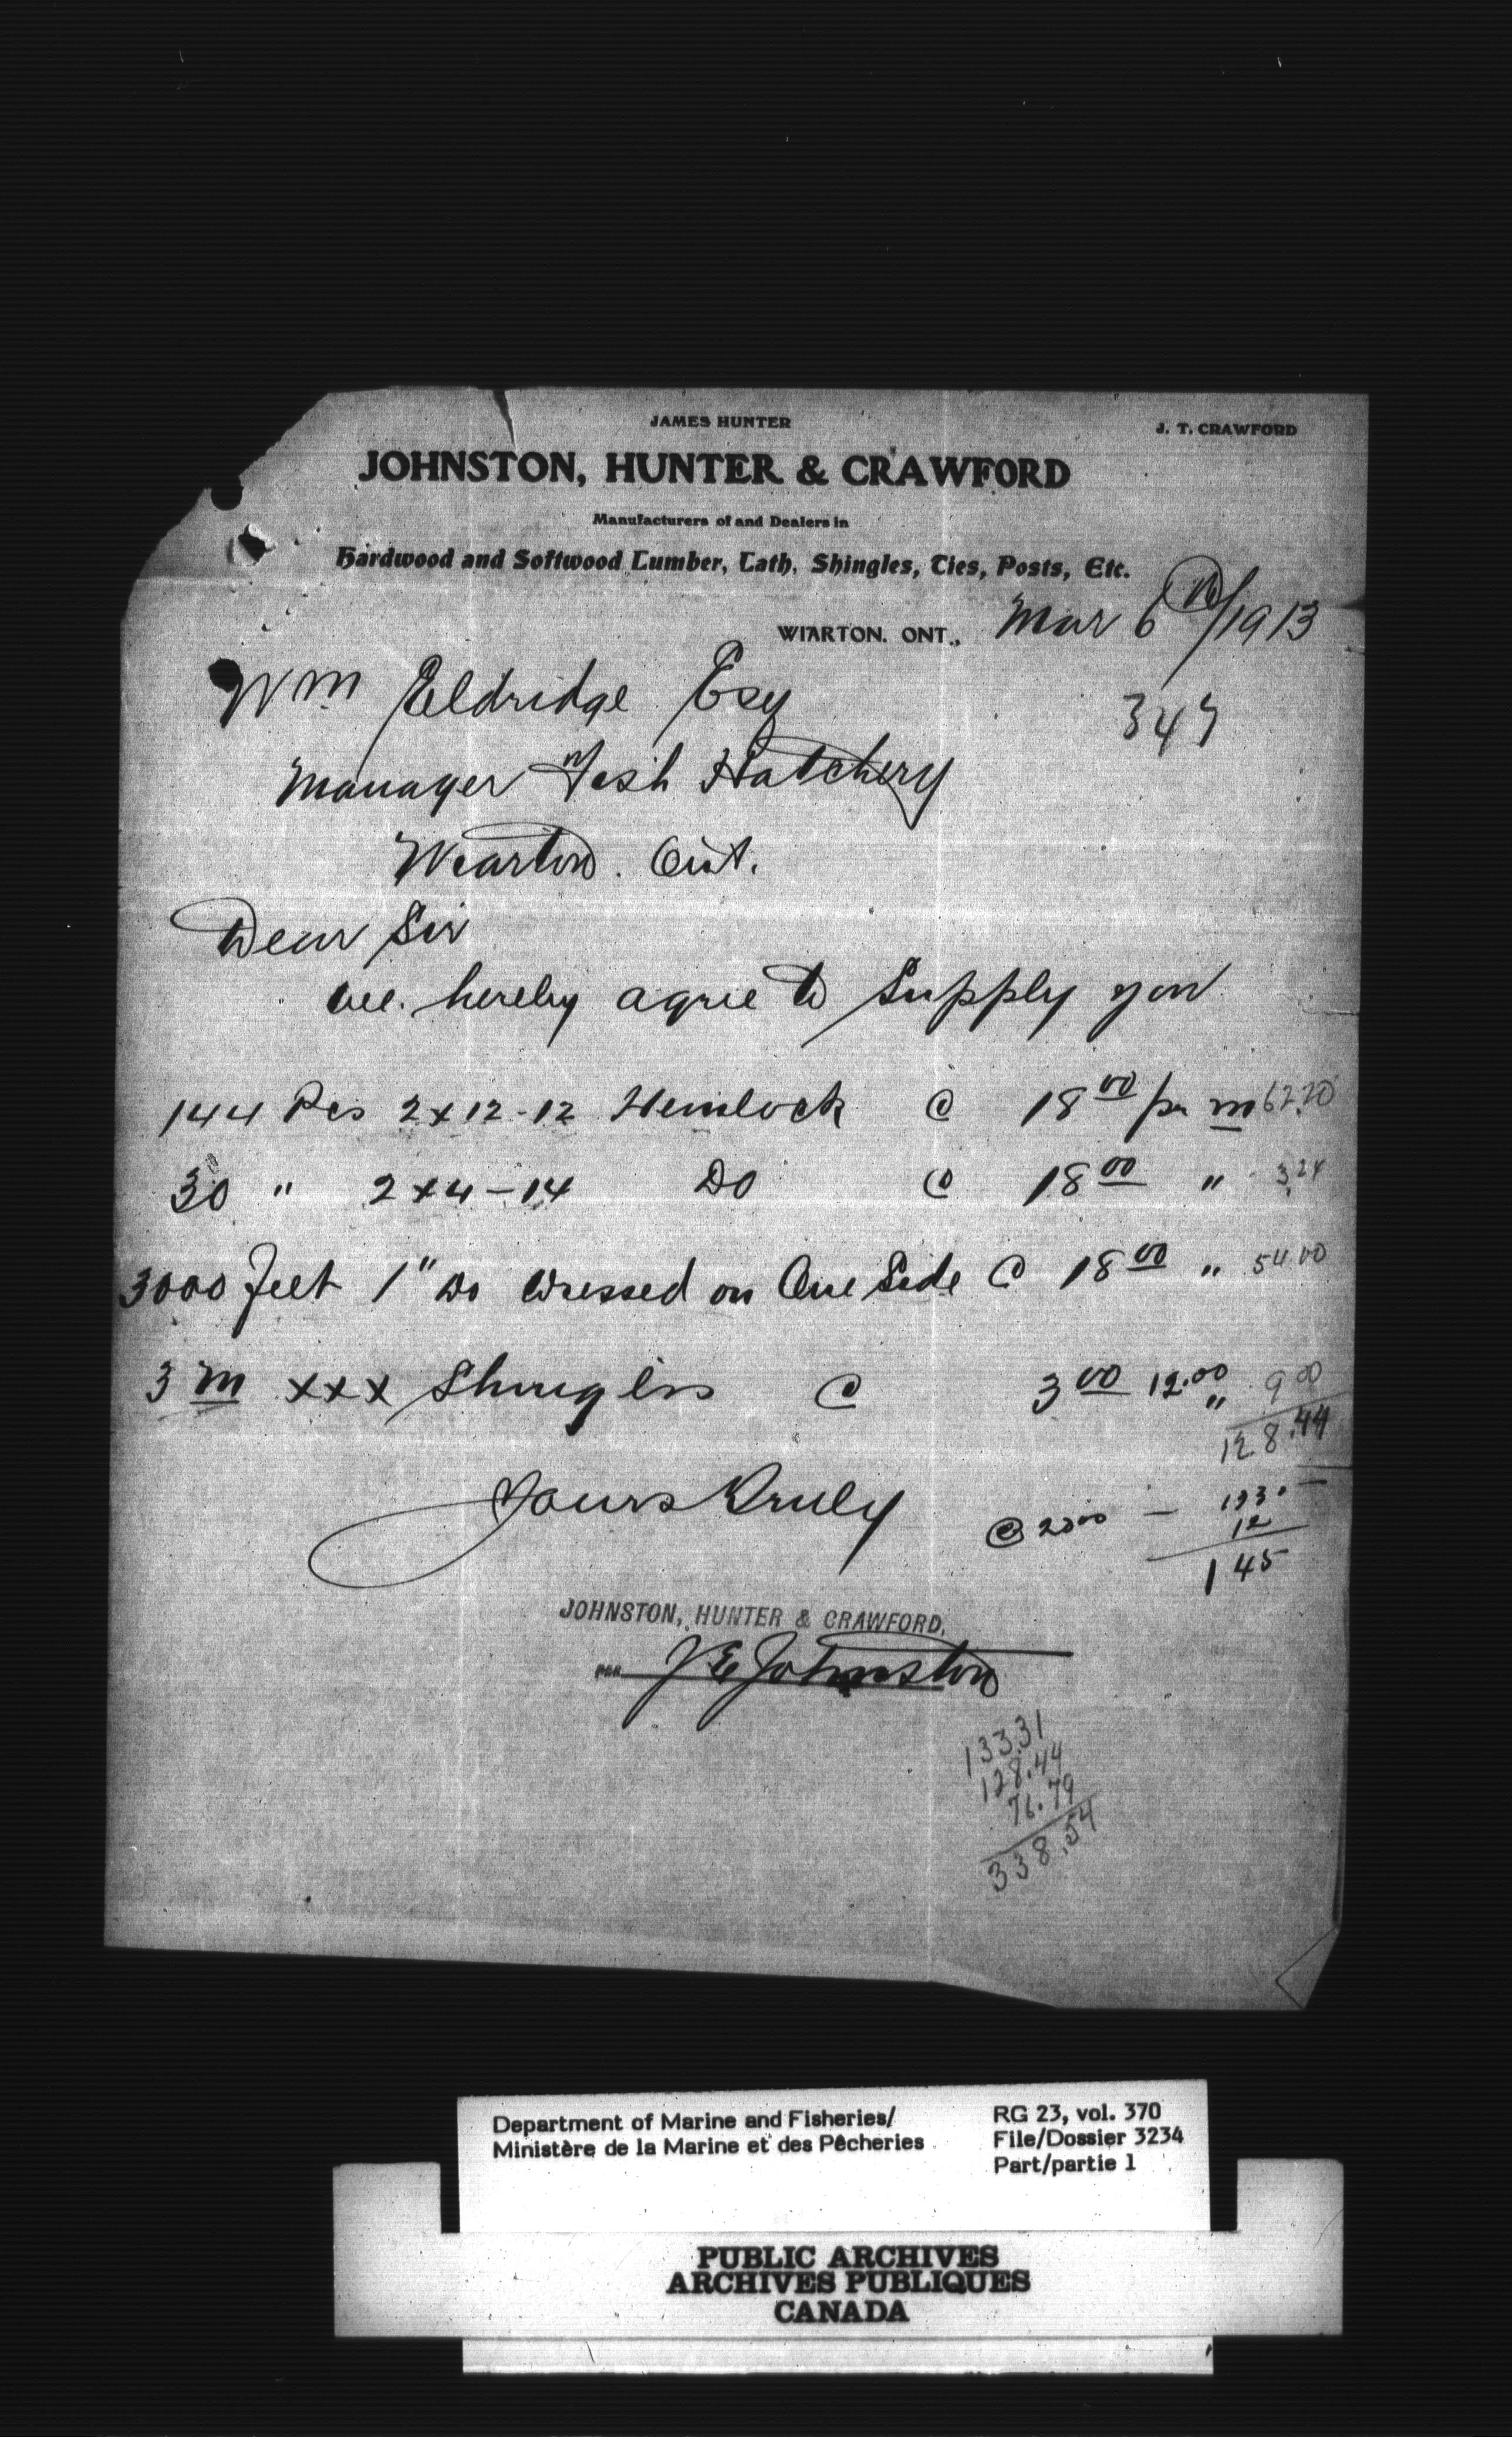 JAMES HUNTER
J. T. CRAWFORD
JOHNSTON, HUNTER & CRAWFORD
Manufacturers of and Dealers in
Hardwood and Softwood Lumber, Lath, Shingles, Ties, Posts, Etc.
WIARTON. ONT., Mar 6th/1913
Wm Eldridge Esq
347
Manager Fish Hatchery
Wiarton. Ont.
Dear Sir
We hereby agree to supply you
144 Pcs 2x12-12 Hemlock @ 18 00 per m 62.20
30 " 2x4-14 Do @ 18 00 " 3.24
3000 feet 1" Do Dressed on One Side @ 18 00 " 54.00
3 m xxx Shingles @ 3 00 12.00 " 9 00
128.44
Yours Truly
@ 20 00 — 133. —
12
145
JOHNSTON, HUNTER & CRAWFORD,
PER J E Johnston
133.31
128.44
76.79
338.54
Department of Marine and Fisheries/
Ministère de la Marine et des Pêcheries
RG 23, vol. 370
File/Dossier 3234
Part/partie 1
PUBLIC ARCHIVES
ARCHIVES PUBLIQUES
CANADA